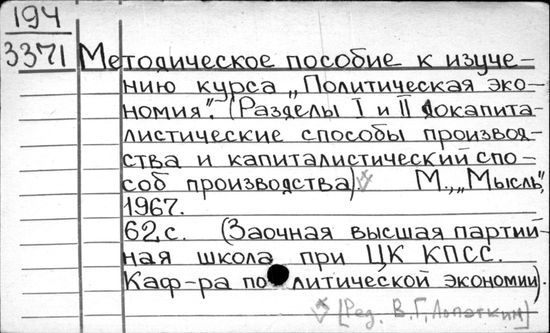 194
3371 Методическое пособие к изуче-
нию курса „Политическая эко-
номия". (Разделы I и II докапита-
листические способы производ-
ства и капиталистический спо-
соб производства) М., „Мысль",
1967.
62 с. (Заочная высшая партий-
ная школа при ЦК КПСС.
Каф-ра политической экономии).
[Ред. В.Г. Лопаткин]